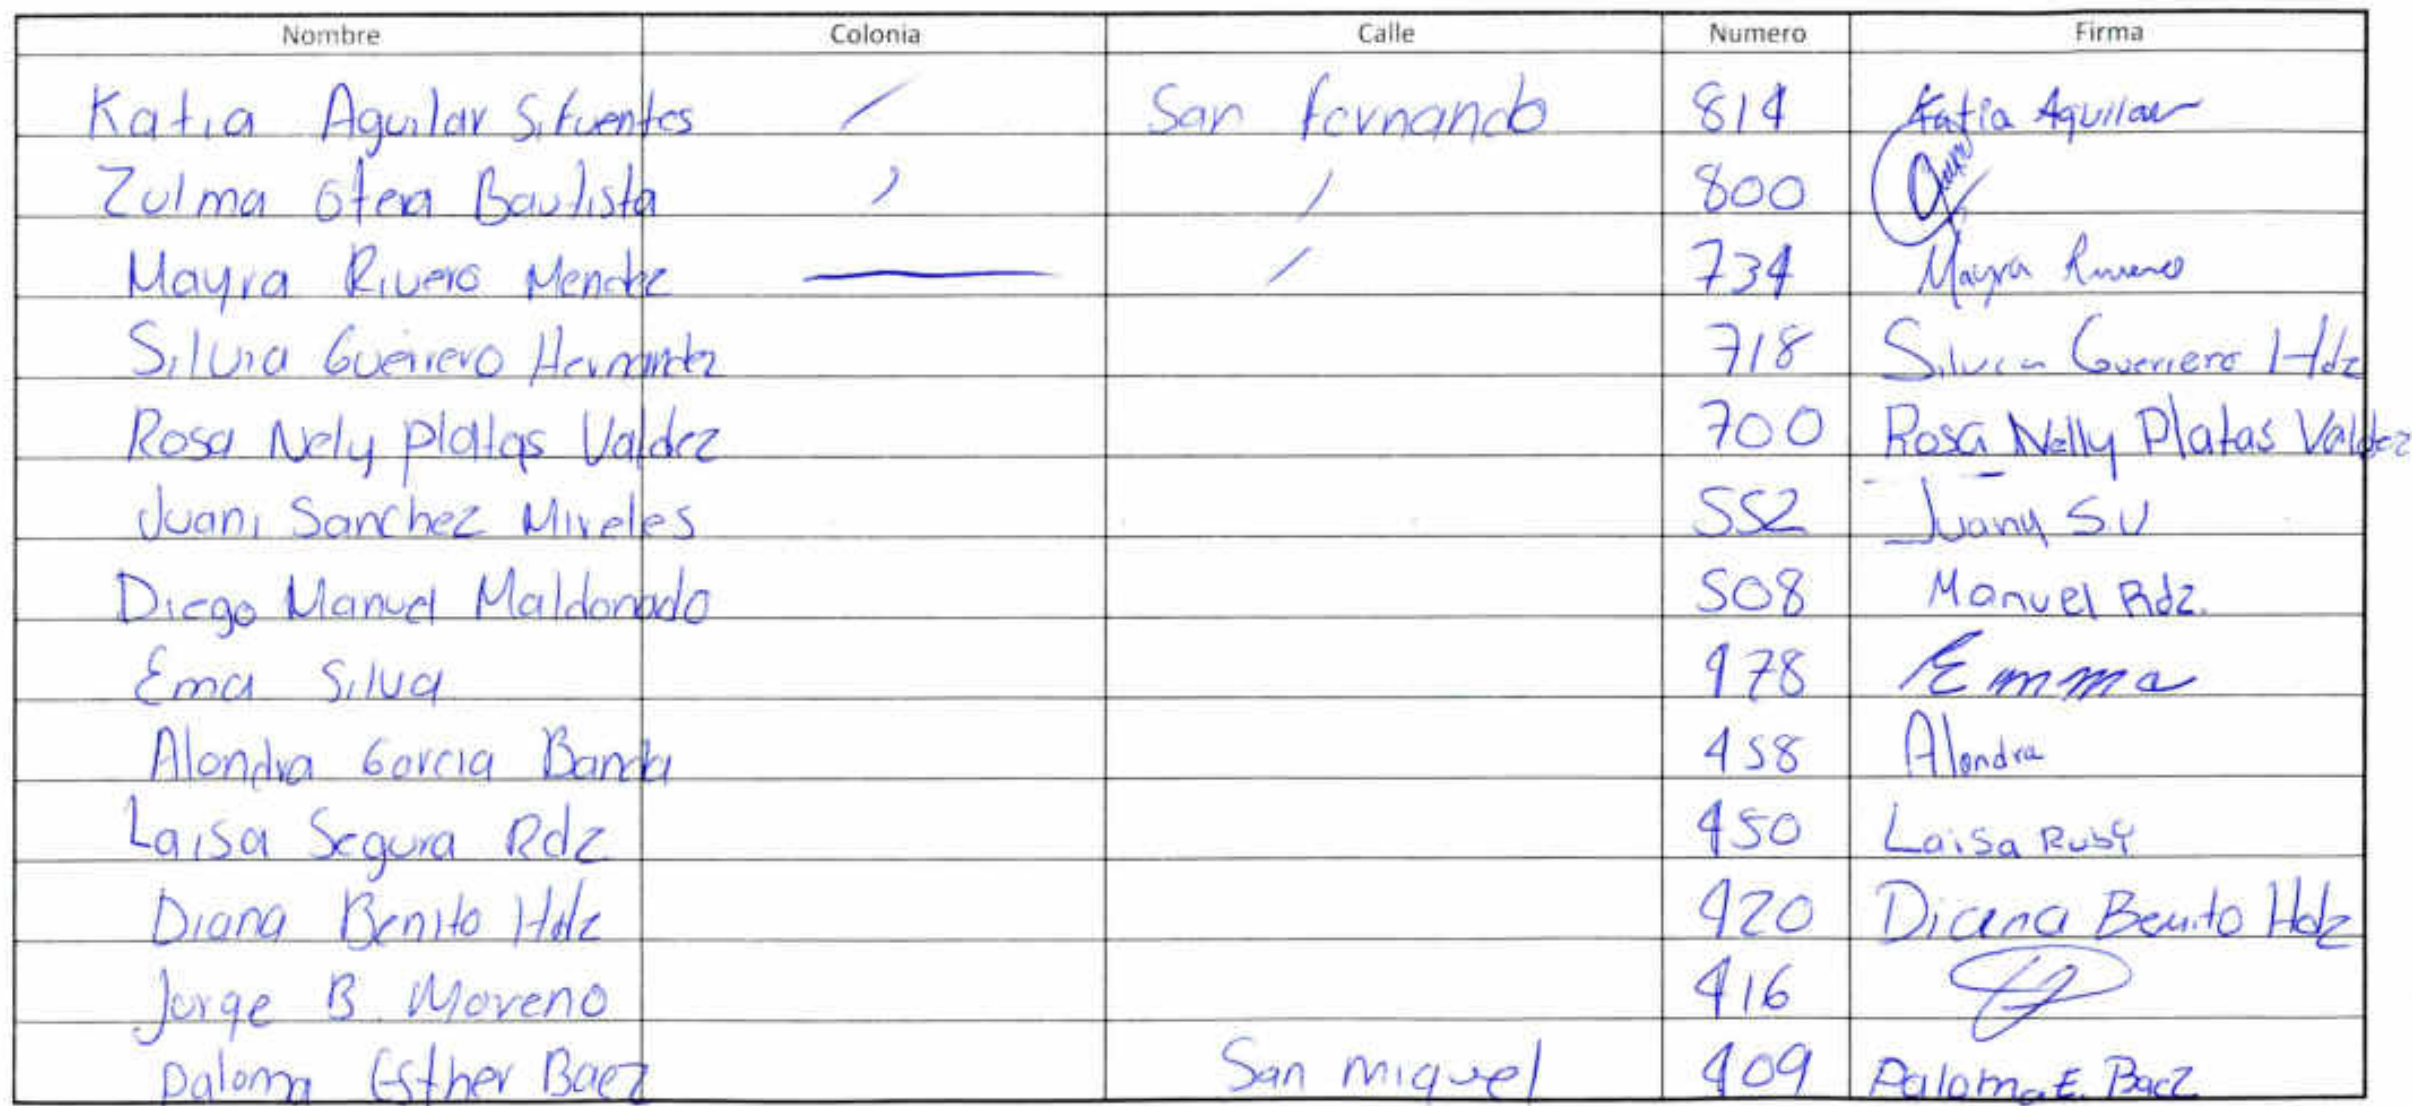 Nombre Colonia Calle Numero Firma
Katia Aguilar Sifuentes / San Fernando 814 Katia Aguilar
Zulma Otera Bautista / / 800
Mayra Rivero Mendez — / 734 Mayra Rivero
Silvia Guerrero Hernandez 718 Silvia Guerrero Hdz
Rosa Nely Platas Valdez 700 Rosa Nelly Platas Valdez
Juani Sanchez Mireles 552 Juany S.V
Diego Manuel Maldonado 508 Manuel Rdz.
Ema Silva 478 Emma
Alondra Garcia Banda 458 Alondra
Laisa Segura Rdz 450 Laisa Ruby
Diana Benito Hdz 420 Diana Benito Hdz
Jorge B. Moreno 416
Paloma Esther Baez San Miguel 409 Paloma E. Baez